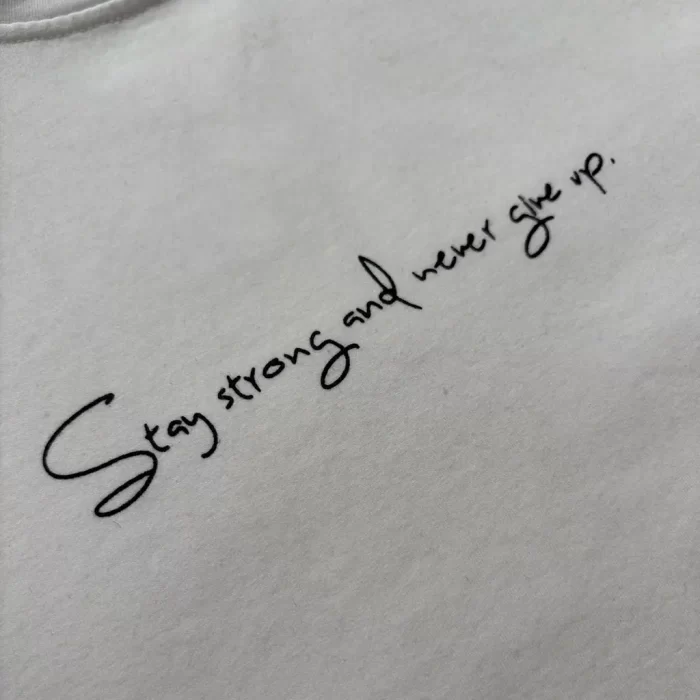 Stay strong and never give up.